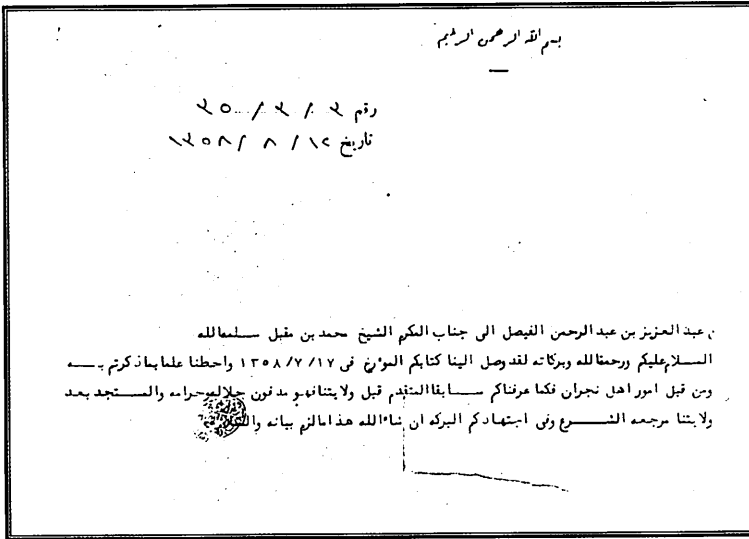 بسم الله الرحمن الرحيم
رقم ٣ / ٣ / ٣٥٠
تاريخ ١٢ / ٨ / ١٣٥٨
عبد العزيز بن عبد الرحمن الفيصل الى جناب المكرم الشيخ محمد بن مقبل سلمهالله
السلامعليكم ورحمةالله وبركاته لقد وصل الينا كتابكم المؤرخ فى ١٣٥٨/٧/١٧ واحطنا علما بماذكرتم به
ومن قبل امور اهل نجران فكما عرفناكم سابقا المتقدم قبل ولايتنا فهو مدفون حلاله وحرامه والمستجد بعد
ولايتنا مرجعه الشرع وفى اجتهادكم البركه ان شاءالله هذا مالزم بيانه والسلام